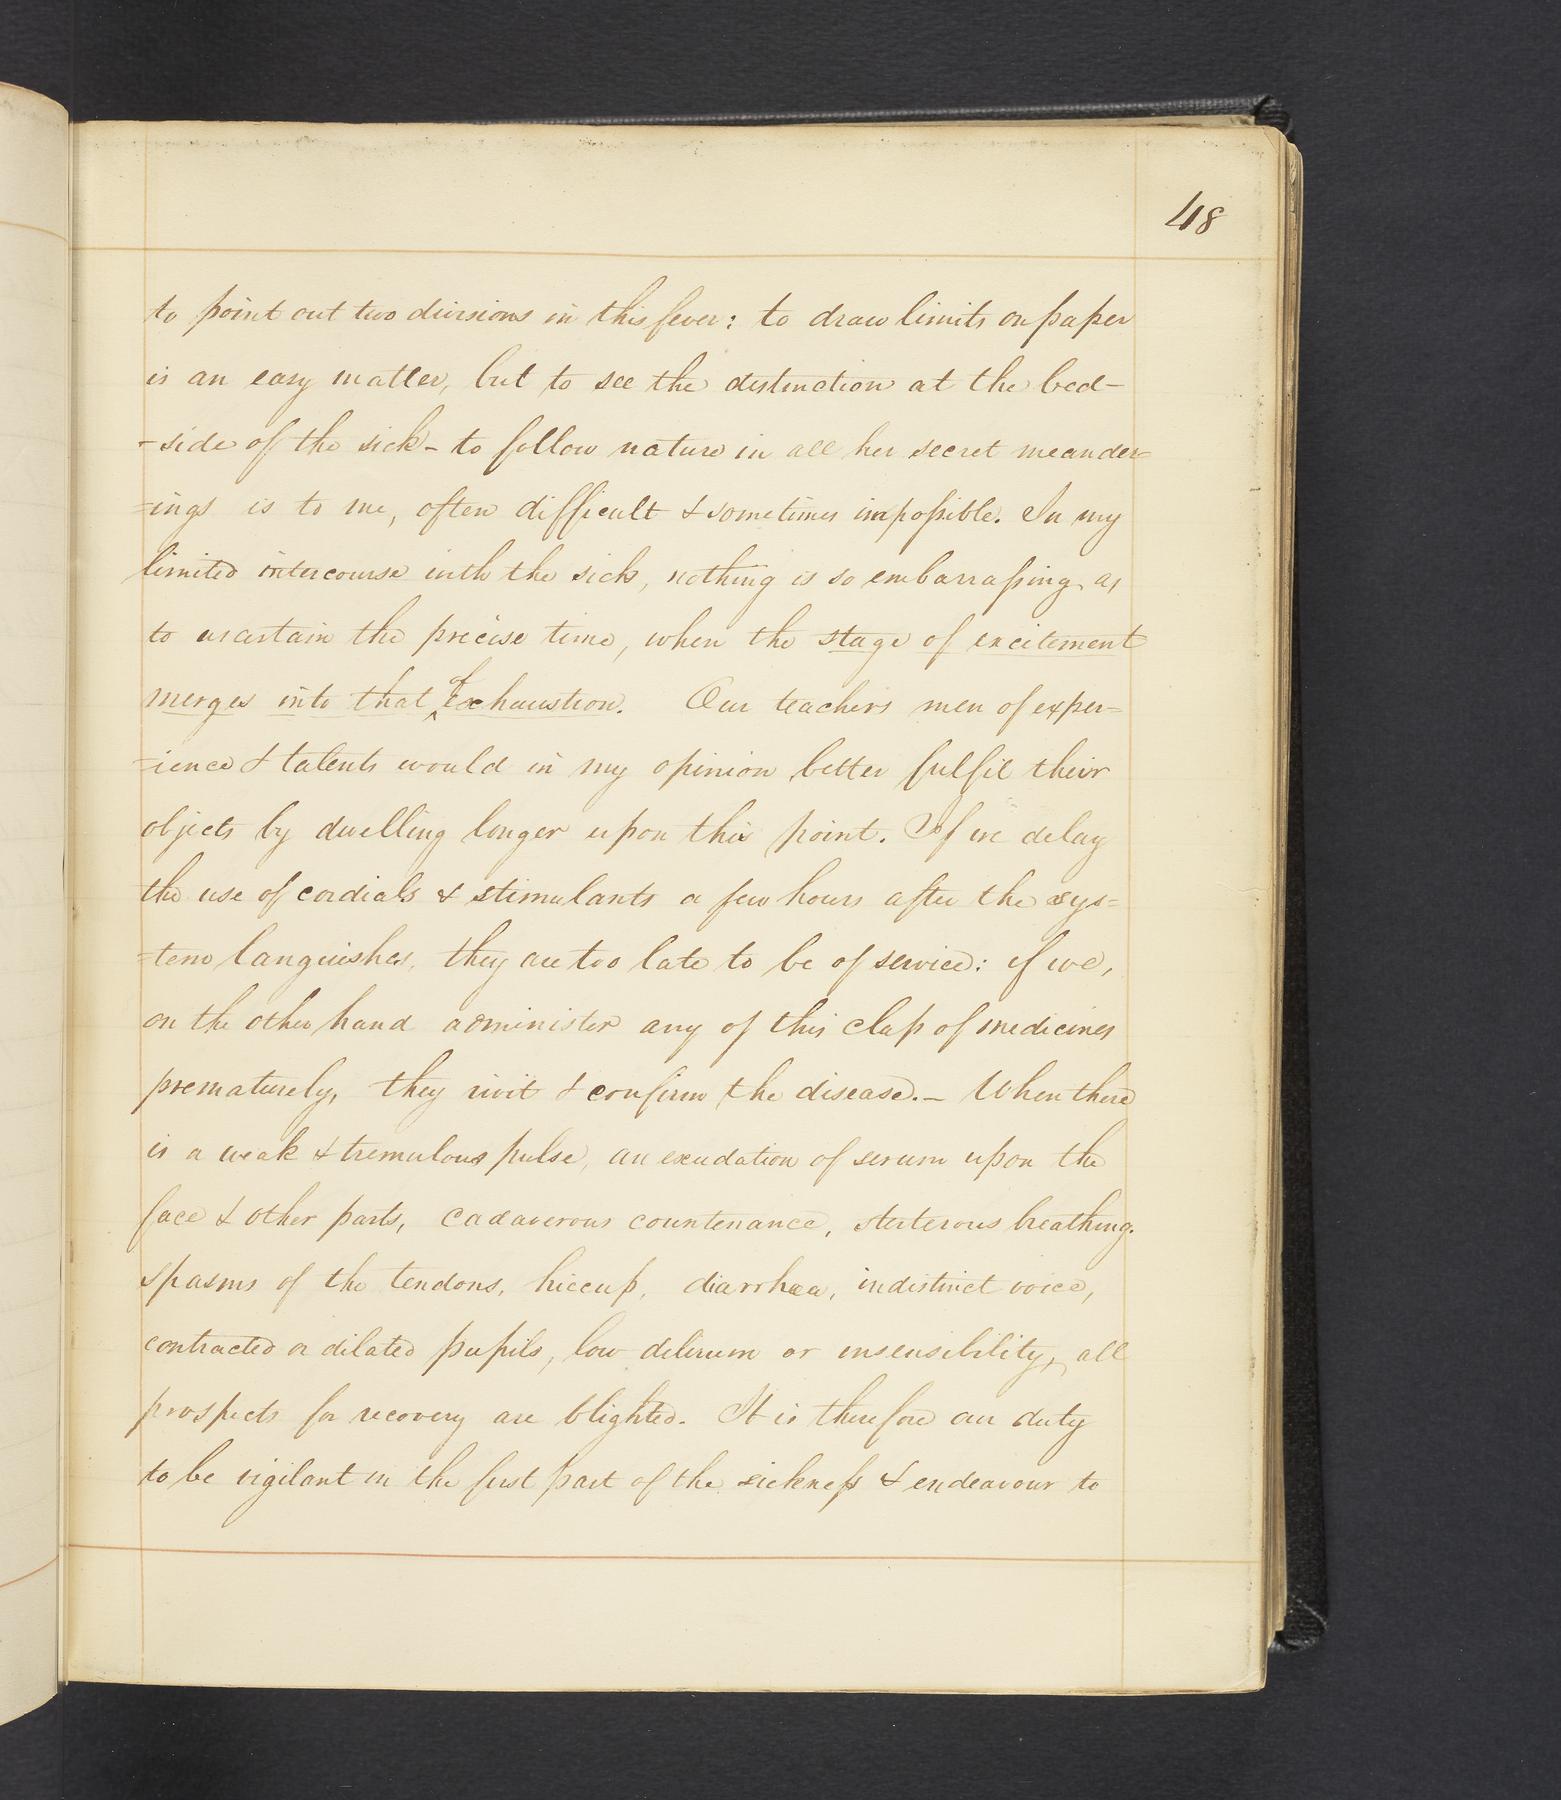 48
to point out two divisions in this fever: to draw limits on paper
is an easy matter, but to see the distinction at the bed-
-side of the sick- to follow nature in all her secret meander=
=ings is to me, often difficult & sometimes impossible. In my
limited intercourse with the sick, nothing is so embarrassing as
to ascertain the precise time, when the stage of excitement
merges into that of exhaustion. Our teachers men of exper=
=ience & talents would in my opinion better fulfil their
objects by dwelling longer upon this point. If we delay
the use of cordials & stimulants a few hours after the sys=
=tem languishes, they are too late to be of service: if we,
on the other hand administer any of this class of medicines
prematurely, they rivit & confirm the disease.- When there
is a weak & tremulous pulse, an exudation of serum upon the
face & other parts, cadaverous countenance, sterterous breathing.
spasms of the tendons, hiccup, diarrhœa, indistinct voice,
contracted or dilated pupils, low delirium or insensibility, all
prospects for recovery are blighted. It is therefore our duty
to be vigilant in the first part of the sickness & endeavour to